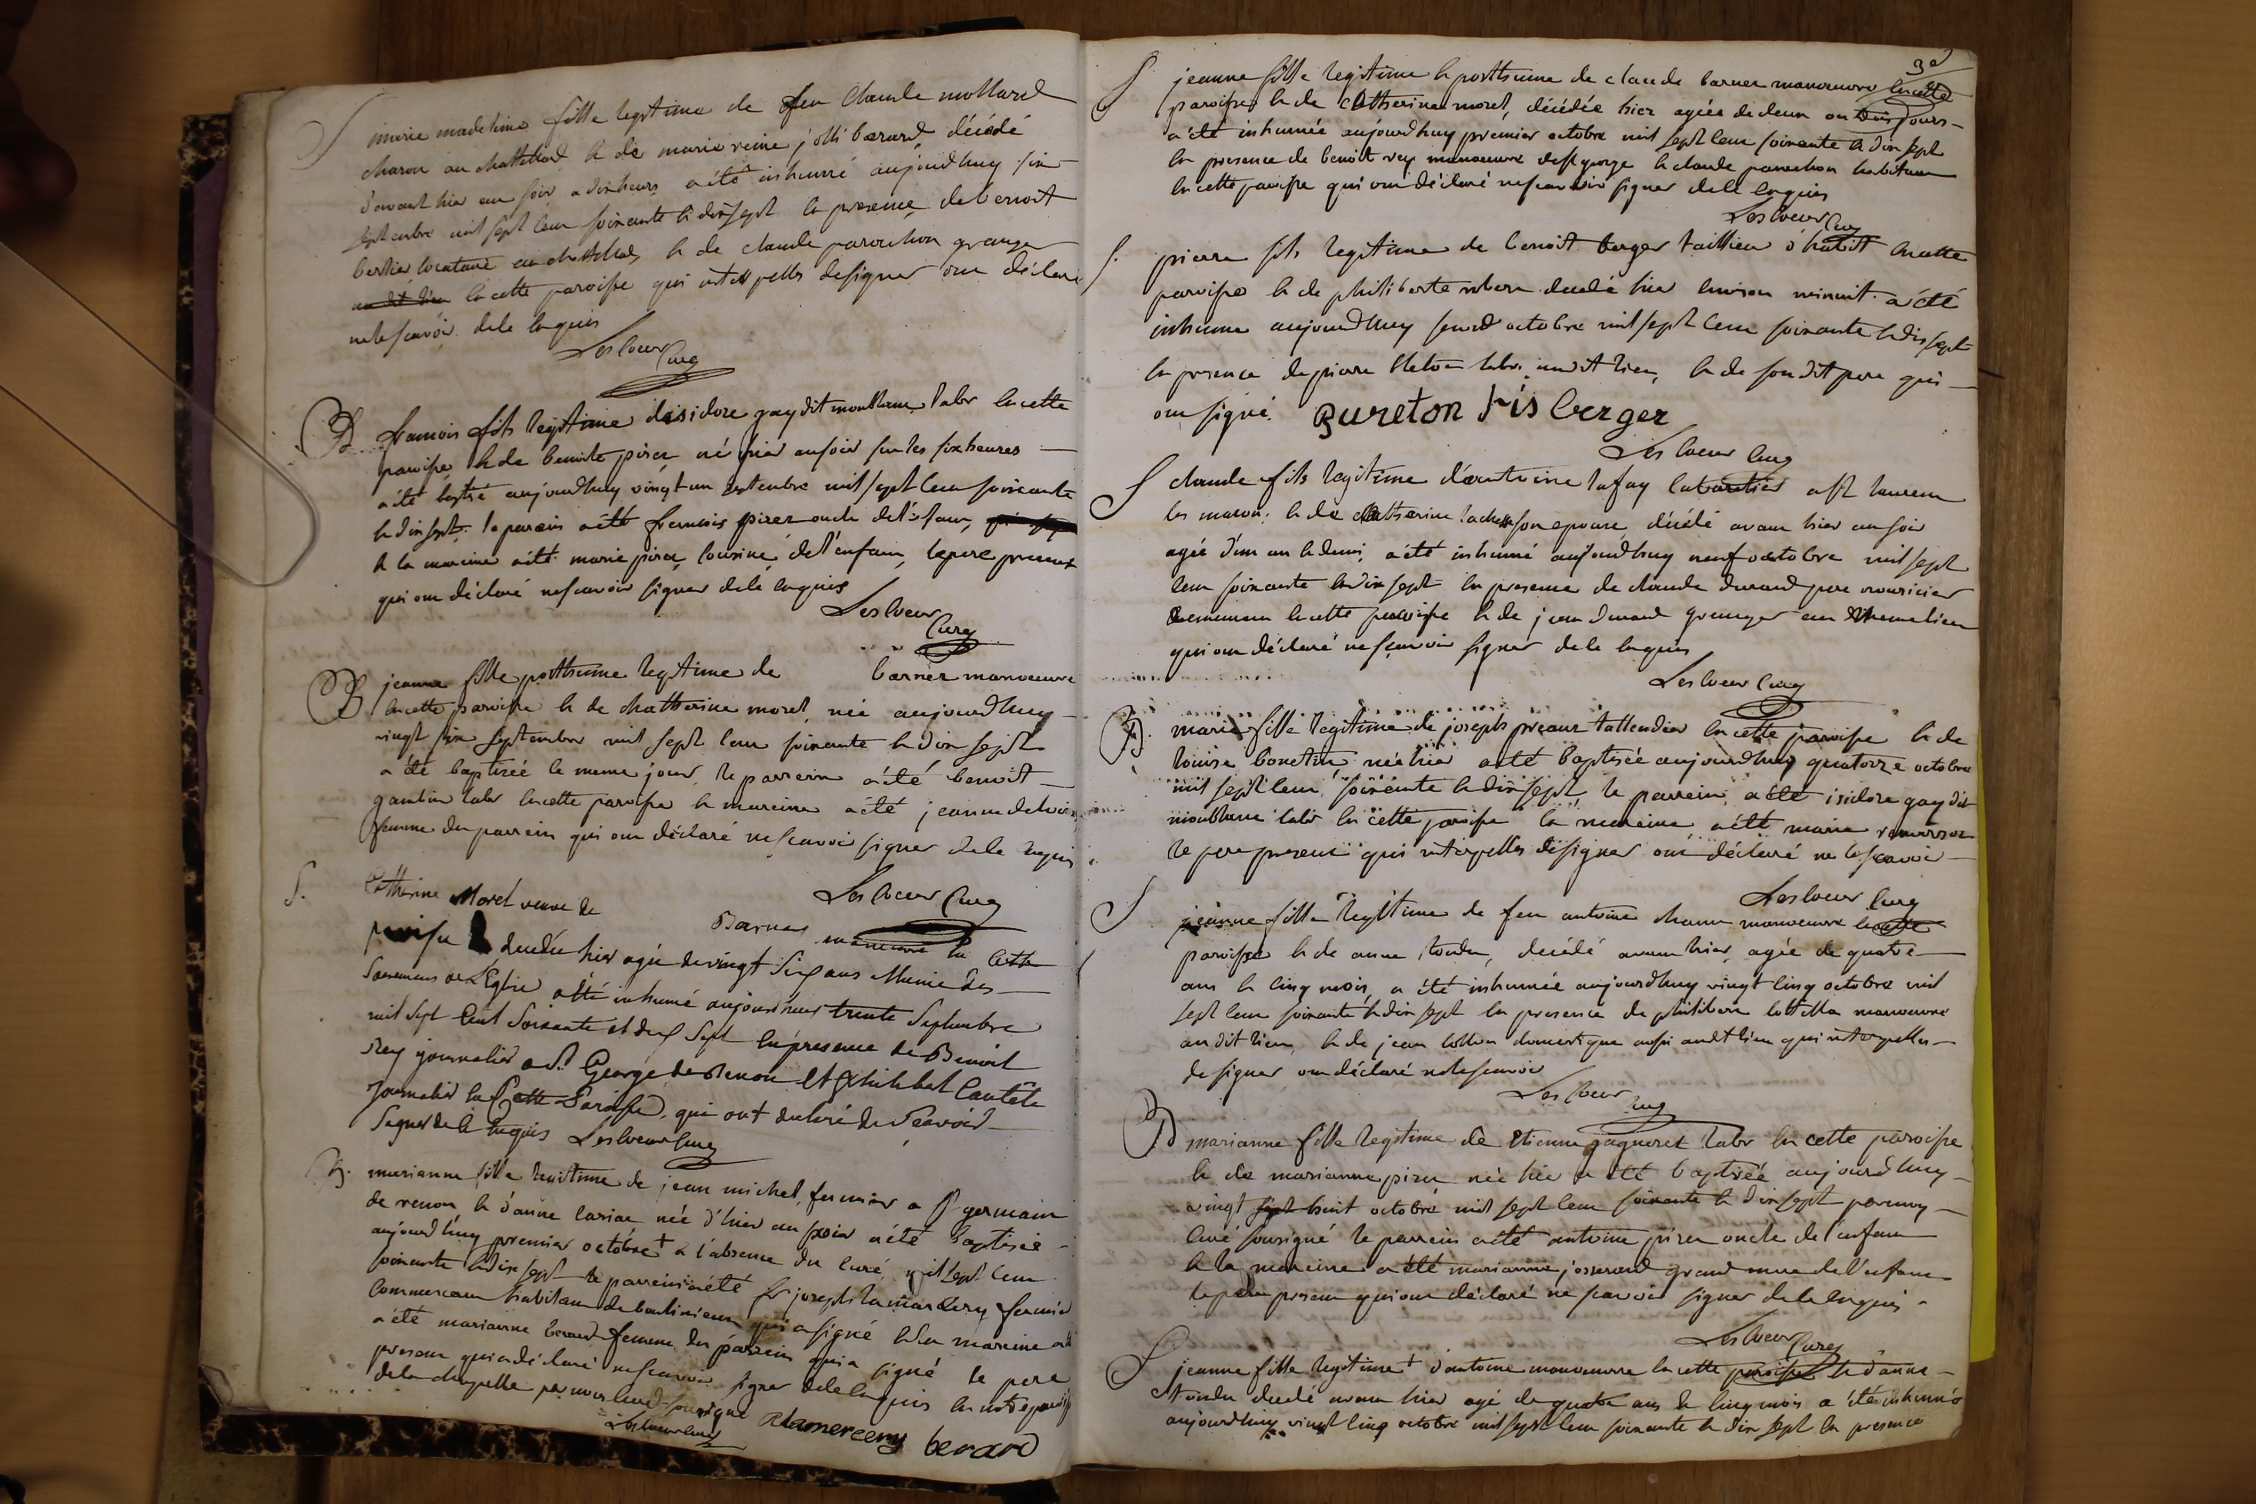 S marie madelaine fille legitime de feu Claude mollard
charon au chattellard, & de marie reine jolli berard, décédé
d'avant hier au soir a dix heures a été inhumé aujourdhuy six
septembre mil sept cent soixante & dix sept en presence de benoit
berthier locataire au chattelard & de claude paruchon granger
en cette paroisse qui interpellés de signer ont déclaré
ne le scavoir de ce enquis
Leslueur Curé
B francois fils legitime d'isidore gay dit monblanc labr en cette
paroisse & de benoite piser né hier au soir sur les six heures
a été baptisé aujourdhuy vingt un septembre mil sept cent soixante
& dix sept. le parrein a été francois pizer oncle de l'enfant,
& la mareine a été marie pizer cousine de l'enfant, le pere present
qui ont déclaré ne scavoir signer de ce enquis
Leslueur Curé
B jeanne fille posthume legitime de barner manoeuvre
en cette paroisse & de chatherine morel, née aujourdhuy
vingt six septembre mil sept cent soixante & dix sept
a été baptisée le meme jour, le parrein a été benoit
gambin labr en cette paroisse & la mareine a été jeanne
femme du parrein qui ont déclaré ne scavoir signer de ce enquis
Leslueur Curé
S. Catherine Morel veuve de Barner manoeuvre en cette
paroisse décedée hier agée de vingt six ans Munie des
Sacremens de L'Eglise a été inhumé aujourdhui trente Septembre
mil Sept Cent Soixante et dix Sept en présence de Benoit
Rey journalier a St George de Renon et Philibert
Journalier en Cette Paroisse, qui ont declaré de Scavoir
Signer de ce Enquis Leslueur Curé
B. marianne fille legitime de jean michel fermier a St germain
de renon & d'anne née d'hier au soir a été baptisée
aujourdhuy premier octobre + a l'absence du curé mil sept cent
soixante & dix sept le parrein a été Sr joseph lamercery fermier
commercant habitant de qui a signé & la mareine a
a été marianne berard femme du parrein qui a signé le pere
present qui a déclaré ne scavoir signer de ce enquis
de la chapelle par nous curé soussigné
Leslueur Curé lamercery berard
S jeanne fille legitime & posthume de claude barner manoeuvre en cette
paroisse & de Catherine morel, décédée hier agée de deux ou jours
a été inhumée aujourdhuy premier octobre mil sept cent soixante & dix sept
en presence de benoit rey manoeuvre de St george & claude paruchon habitant
en cette paroisse qui ont déclaré ne scavoir signer de ce enquis
Leslueur Curé
S. pierre fils legitime de benoit berger taillieur d'habit en cette
paroisse & de philiberte decedé hier environ minuit a été
inhumé aujourdhuy second octobre mil sept cent soixante & dix sept
en presence de pierre labr. audit lieu, & de son dit pere qui
ont signé. Bureton fis berger
Leslueur Curé
S claude fils legitime d'antoine lafay cabaretier a St laurent
les macon, & de Catherine son epouse, décédé avant hier au soir
agée d'un an & demi, a été inhumé aujourdhuy neuf octobre mil sept
cent soixante & dix sept en presence de claude durand pere nouricier
demeurant en cette paroisse & de jean durand granger au meme lieu
qui ont déclaré ne scavoir signer de ce enquis
Leslueur Curé
B. marie fille legitime de joseph en cette paroisse & de
louise née hier a été baptisée aujourdhuy quatorze octobre
mil sept cent soixante & dix sept, le parrein a été isidore gay dit
monblanc labr en cette paroisse la mareine a été marie
le pere present qui interpellés de signer ont déclaré ne le scavoir
Leslueur Curé
S jeanne fille legitime de feu antoine manoeuvre en cette
paroisse & de anne tondu, decedé avant hier, agée de quatre
ans & cinq mois, a été inhumée aujourdhuy vingt cinq octobre mil
sept cent soixante & dix sept en presence de philibert manoeuvre
au dit lieu, & de jean domestique aussi audit lieu qui interpellés
de signer ont déclaré ne le scavoir
Leslueur Curé
B marianne fille legitime de Etienne gagneret labr en cette paroisse
& de marianne pizer née hier a été baptisée aujourdhuy
vingt huit octobre mil sept cent soixante & dix sept par moy
curé sousigné le parrein a été antoine pizer oncle de l'enfant
& la mareine a été marianne josserand grand mere de l'enfant
le pere present qui ont déclaré ne scavoir signer de ce enquis
Leslueur Curé
S jeanne fille legitime + d'antoine manoeuvre en cette paroisse & d'anne
tondu decedé avant hier agé de quatre ans & cinq mois a été inhumée
aujourdhuy vingt cinq octobre mil sept cent soixante & dix sept en presence